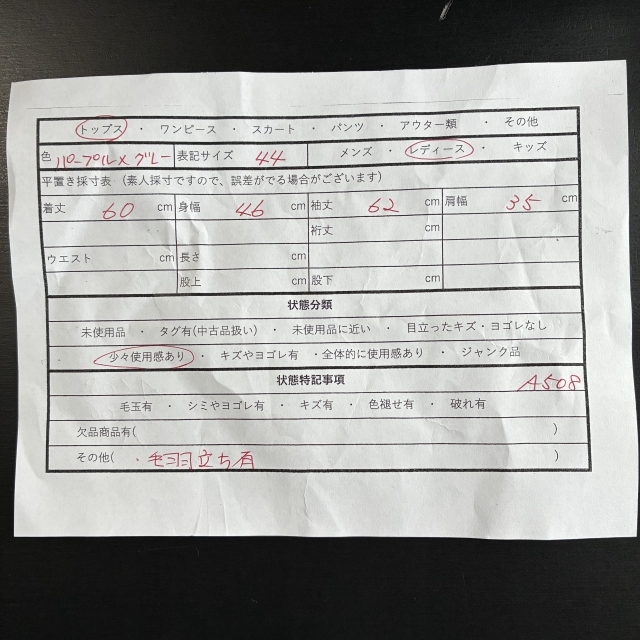 トップス ・ ワンピース ・ スカート ・ パンツ ・ アウター類 ・ その他
色 パープル×グレー 表記サイズ 44 メンズ ・ レディース ・ キッズ
平置き採寸表 (素人採寸ですので、誤差がでる場合がございます)
着丈 60 cm 身幅 46 cm 袖丈 62 cm 肩幅 35 cm
裄丈 cm
ウエスト cm 長さ cm
股上 cm 股下 cm
状態分類
未使用品 ・ タグ有(中古品扱い) ・ 未使用品に近い ・ 目立ったキズ・ヨゴレなし
少々使用感あり ・ キズやヨゴレ有 ・全体的に使用感あり ・ ジャンク品
状態特記事項 A508
毛玉有 ・ シミやヨゴレ有 ・ キズ有 ・ 色褪せ有 ・ 破れ有
欠品商品有( )
その他( ・毛羽立ち有 )